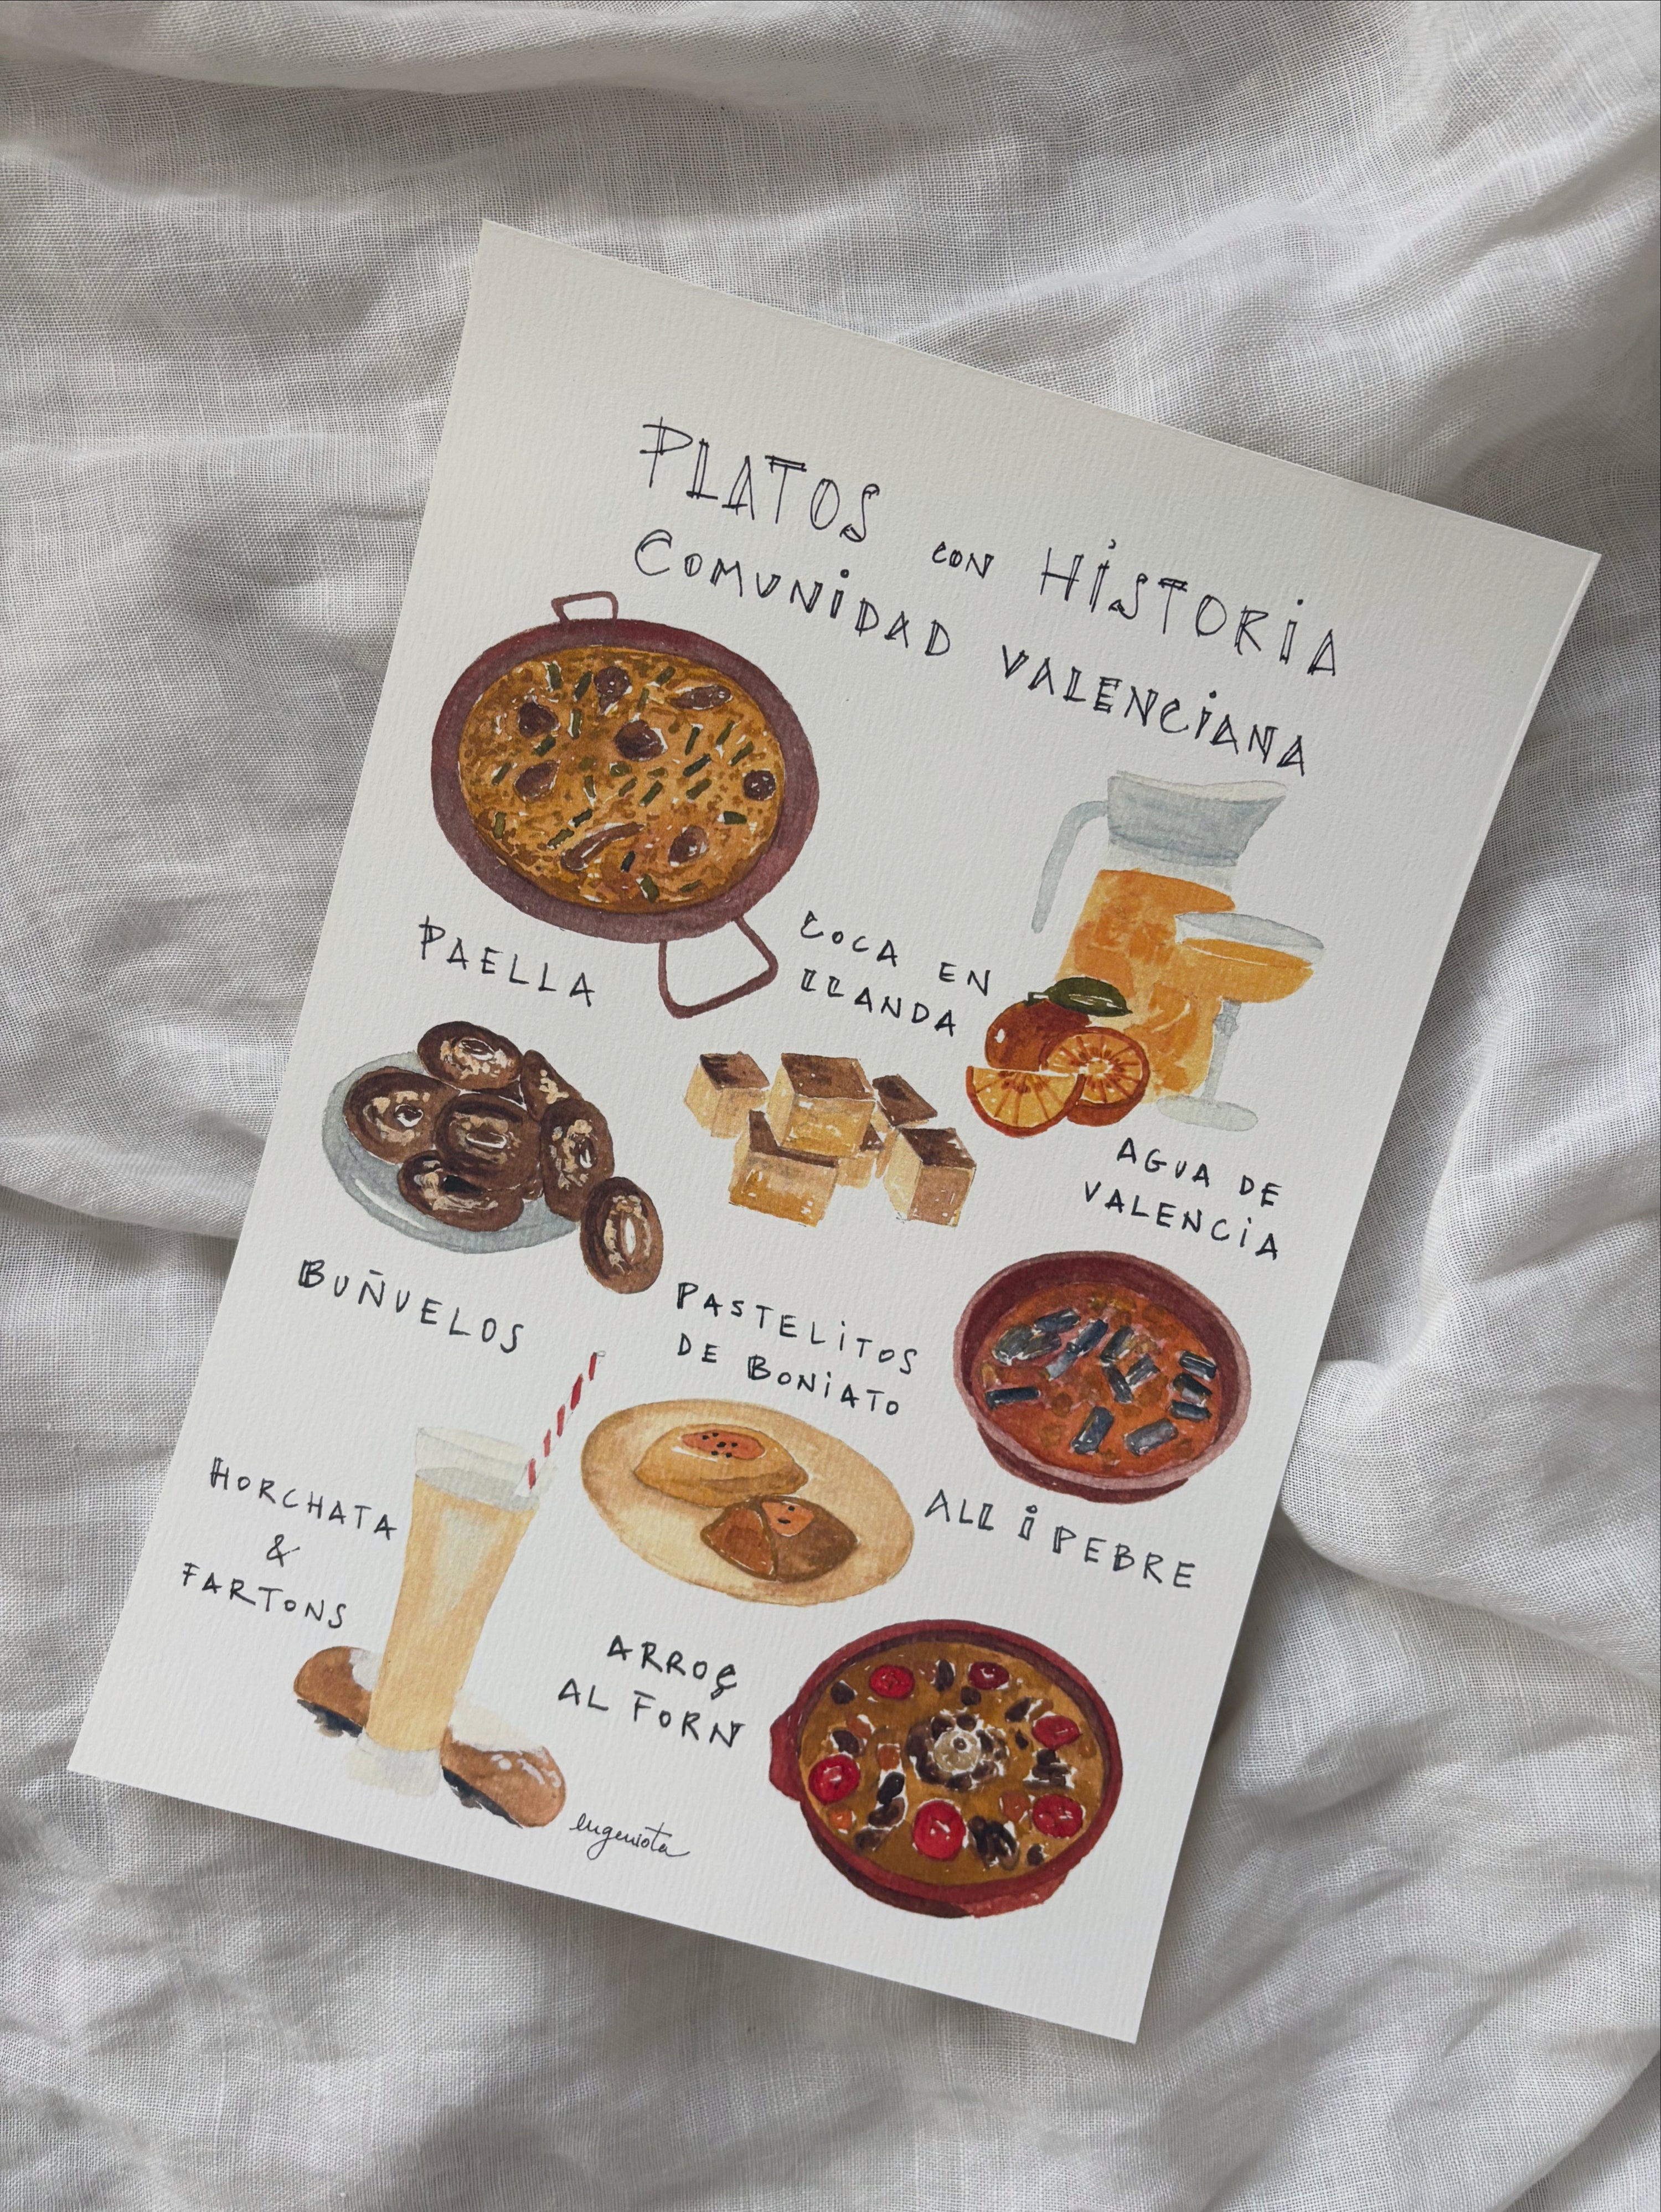 PLATOS CON HISTORIA
COMUNIDAD VALENCIANA
PAELLA
COCA EN
LLANDA
AGUA DE
VALENCIA
BUÑUELOS
PASTELITOS
DE BONIATO
ALL i PEBRE
HORCHATA
&
FARTONS
ARROÇ
AL FORN
eugeniota